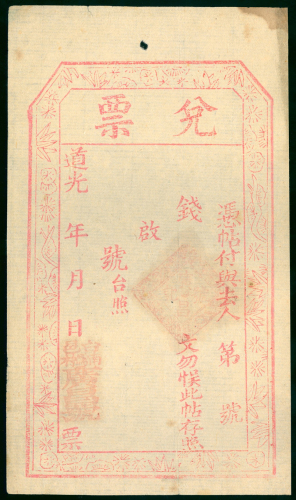 兌票
憑帖付與去人 第 號
錢 文勿悞此帖存照
啟
號台照
道光 年 月 日 票